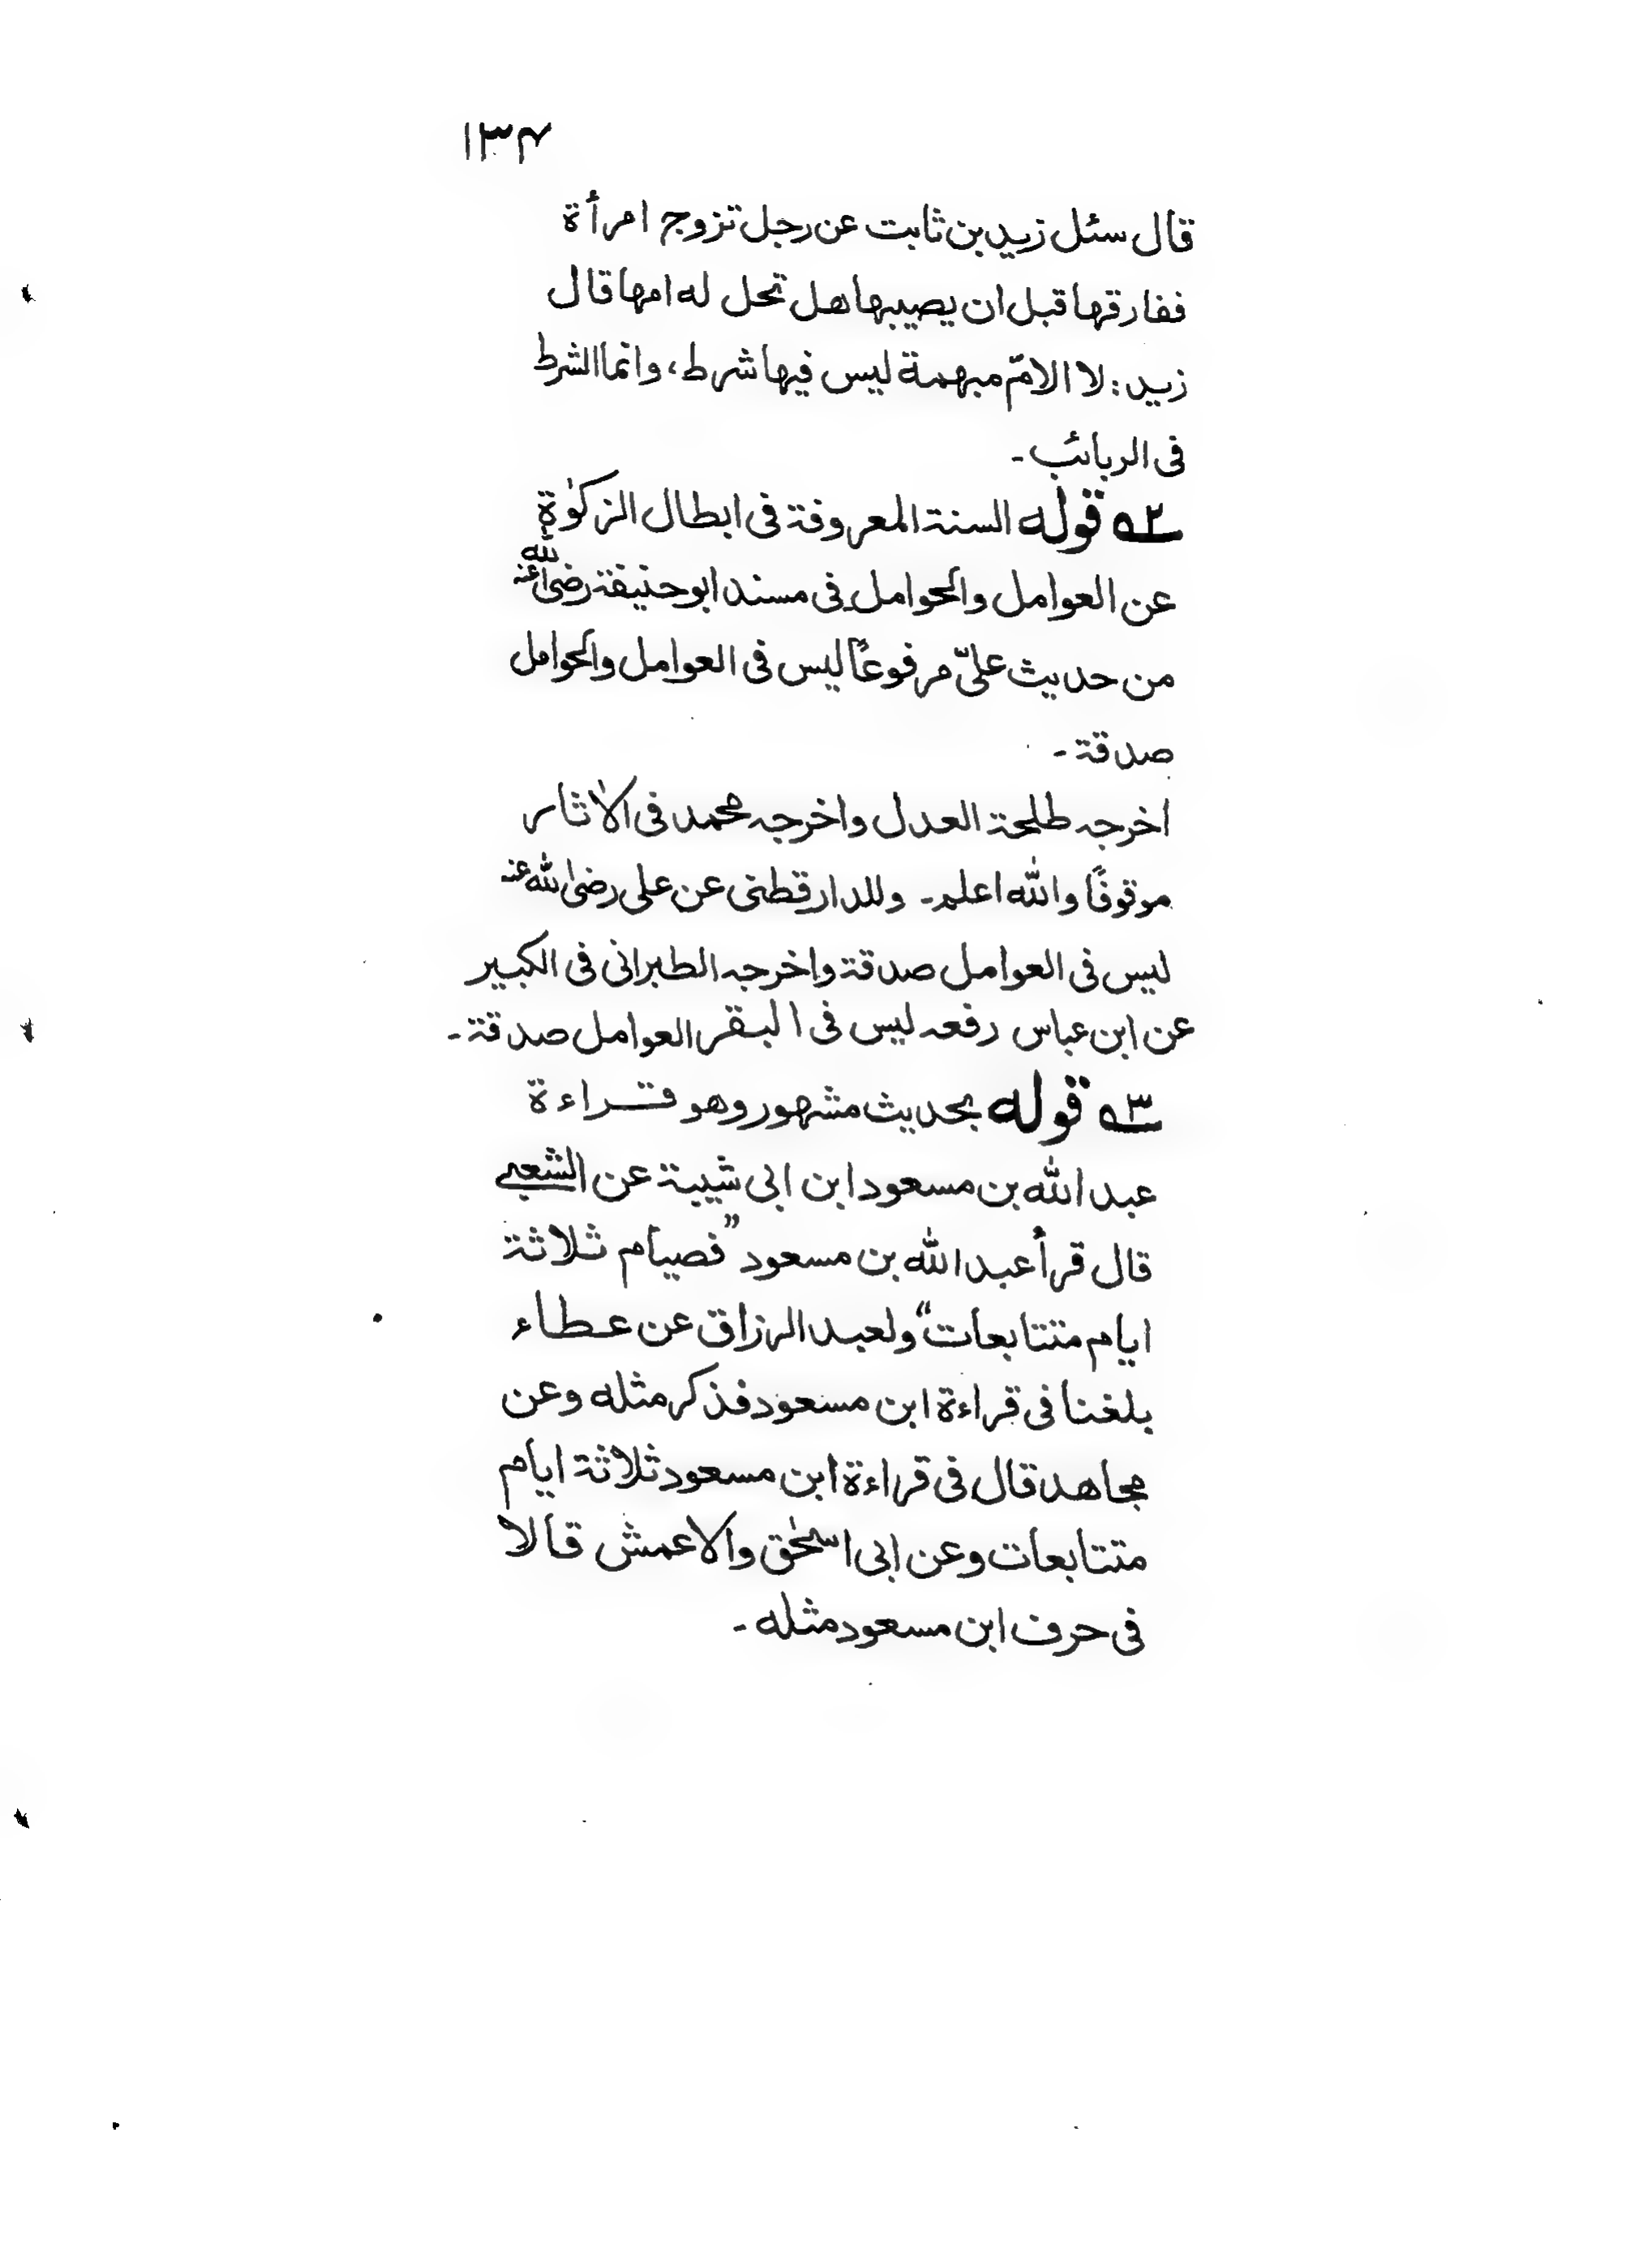 ۱۳۴
قال سئل زيد بن ثابت عن رجل تزوج امرأة
ففارقها قبل ان يصيبها هل تحل له امها قال
زيد: لا الامّ مبهمة ليس فيها شرط، وانما الشرط
فى الربائب۔
۵۲ قوله السنة المعروفة فى ابطال الزكوٰة
عن العوامل والحوامل فى مسند ابو حنيفة رضى الله عنه
من حديث علىّ مرفوعًا ليس فى العوامل والحوامل
صدقة۔
اخرجه طلحة العدل واخرجه محمد فى الاٰثار
موقوفًا والله اعلم۔ وللدارقطنى عن على رضى الله عنه
ليس فى العوامل صدقة واخرجه الطبرانى فى الكبير
عن ابن عباس رفعه ليس فى البقر العوامل صدقة۔
۵۳ قوله بحديث مشهور وهو قراءة
عبد الله بن مسعود ابن ابى شيبة عن الشعبى
قال قرأ عبد الله بن مسعود ”فصيام ثلاثة
ايام متتابعات“ ولعبد الرزاق عن عطاء
بلغنا فى قراءة ابن مسعود فذكر مثله وعن
مجاهد قال فى قراءة ابن مسعود ثلاثة ايام
متتابعات وعن ابى اسحٰق والاعمش قالا
فى حرف ابن مسعود مثله۔